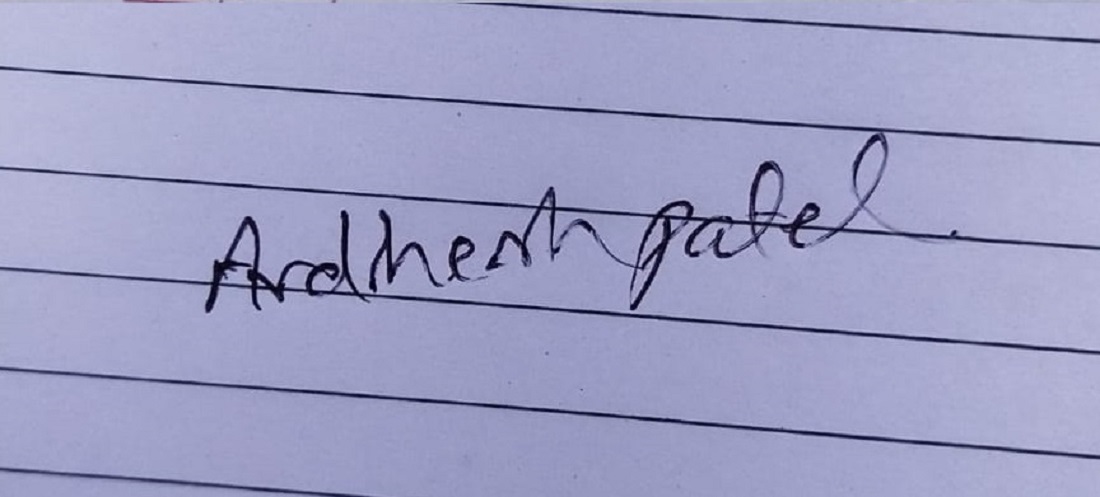 Ardhesh patel.